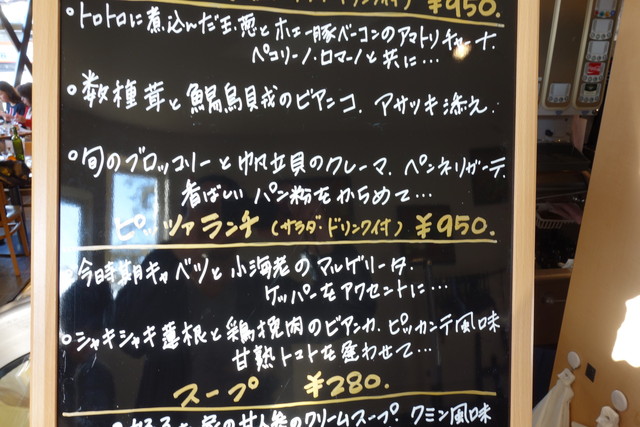 ドリンク付) ¥950.
・トロトロに煮込んだ玉葱とホエー豚ベーコンのアマトリチャーナ.
ペコリーノ・ロマーノと共に…
・数種茸と鯣烏貝のビアンコ. アサツキ添え.
・旬のブロッコリーと帆立貝のクレーマ. ペンネリガーテ.
香ばしいパン粉をからめて…
ピッツァランチ (サラダ・ドリンク付) ¥950.
・今時期キャベツと小海老のマルゲリータ.
ケッパーをアクセントに…
・シャキシャキ蓮根と鶏挽肉のビアンカ. ピッカンテ風味
甘熟トマトを合わせて…
スープ ¥280.
の甘人参のクリームスープ. クミン風味